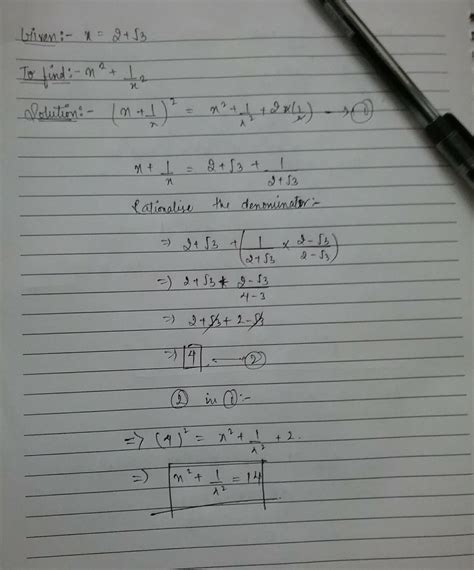 Given:- x = 2+√3
To find:- x² + 1/x²
Solution:- (x + 1/x)² = x² + 1/x² + 2x(1/x) → ①
x + 1/x = 2+√3 + 1/(2+√3)
Rationalise the denominator:-
⇒ 2+√3 + (1/(2+√3) × (2-√3)/(2-√3))
⇒ 2+√3 + (2-√3)/(4-3)
⇒ 2+√3 + 2-√3
⇒ 4 — ②
② in ①:-
⇒ (4)² = x² + 1/x² + 2.
⇒ x² + 1/x² = 14